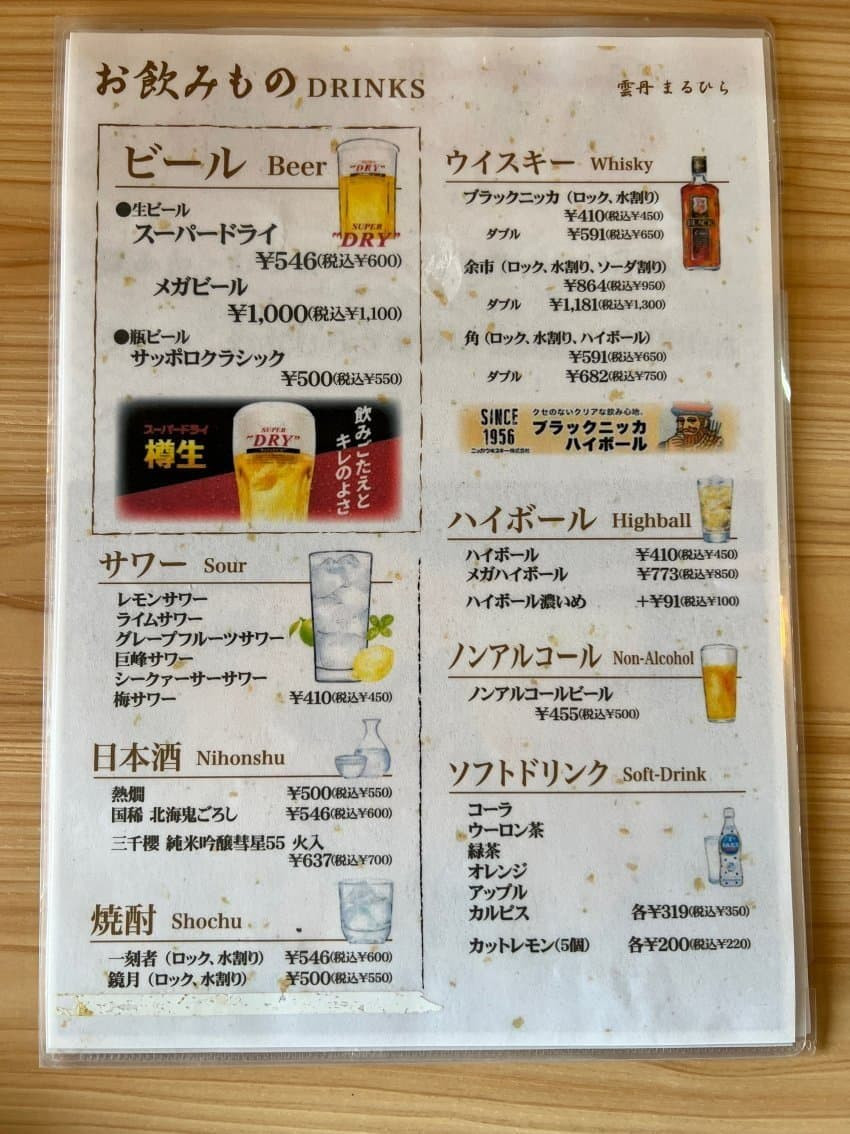 お飲みもの DRINKS
雲丹 まるひら
ビール Beer
●生ビール
スーパードライ
¥546(税込¥600)
メガビール
¥1,000(税込¥1,100)
●瓶ビール
サッポロクラシック
¥500(税込¥550)
"DRY"
SUPER
"DRY"
スーパードライ
樽生
SUPER
"DRY"
飲みごたえと
キレのよさ
サワー Sour
レモンサワー
ライムサワー
グレープフルーツサワー
巨峰サワー
シークァーサーサワー
梅サワー ¥410(税込¥450)
日本酒 Nihonshu
熱燗 ¥500(税込¥550)
国稀 北海鬼ごろし ¥546(税込¥600)
三千櫻 純米吟醸彗星55 火入
¥637(税込¥700)
焼酎 Shochu
一刻者（ロック、水割り） ¥546(税込¥600)
鏡月（ロック、水割り） ¥500(税込¥550)
ウイスキー Whisky
ブラックニッカ（ロック、水割り）
¥410(税込¥450)
ダブル ¥591(税込¥650)
BLACK
余市（ロック、水割り、ソーダ割り）
¥864(税込¥950)
ダブル ¥1,181(税込¥1,300)
角（ロック、水割り、ハイボール）
¥591(税込¥650)
ダブル ¥682(税込¥750)
SINCE
1956
ニッカウヰスキー株式会社
クセのないクリアな飲み心地。
ブラックニッカ
ハイボール
ハイボール Highball
ハイボール ¥410(税込¥450)
メガハイボール ¥773(税込¥850)
ハイボール濃いめ +¥91(税込¥100)
ノンアルコール Non-Alcohol
ノンアルコールビール
¥455(税込¥500)
ソフトドリンク Soft-Drink
コーラ
ウーロン茶
緑茶
オレンジ
アップル
カルピス 各¥319(税込¥350)
カットレモン(5個) 各¥200(税込¥220)